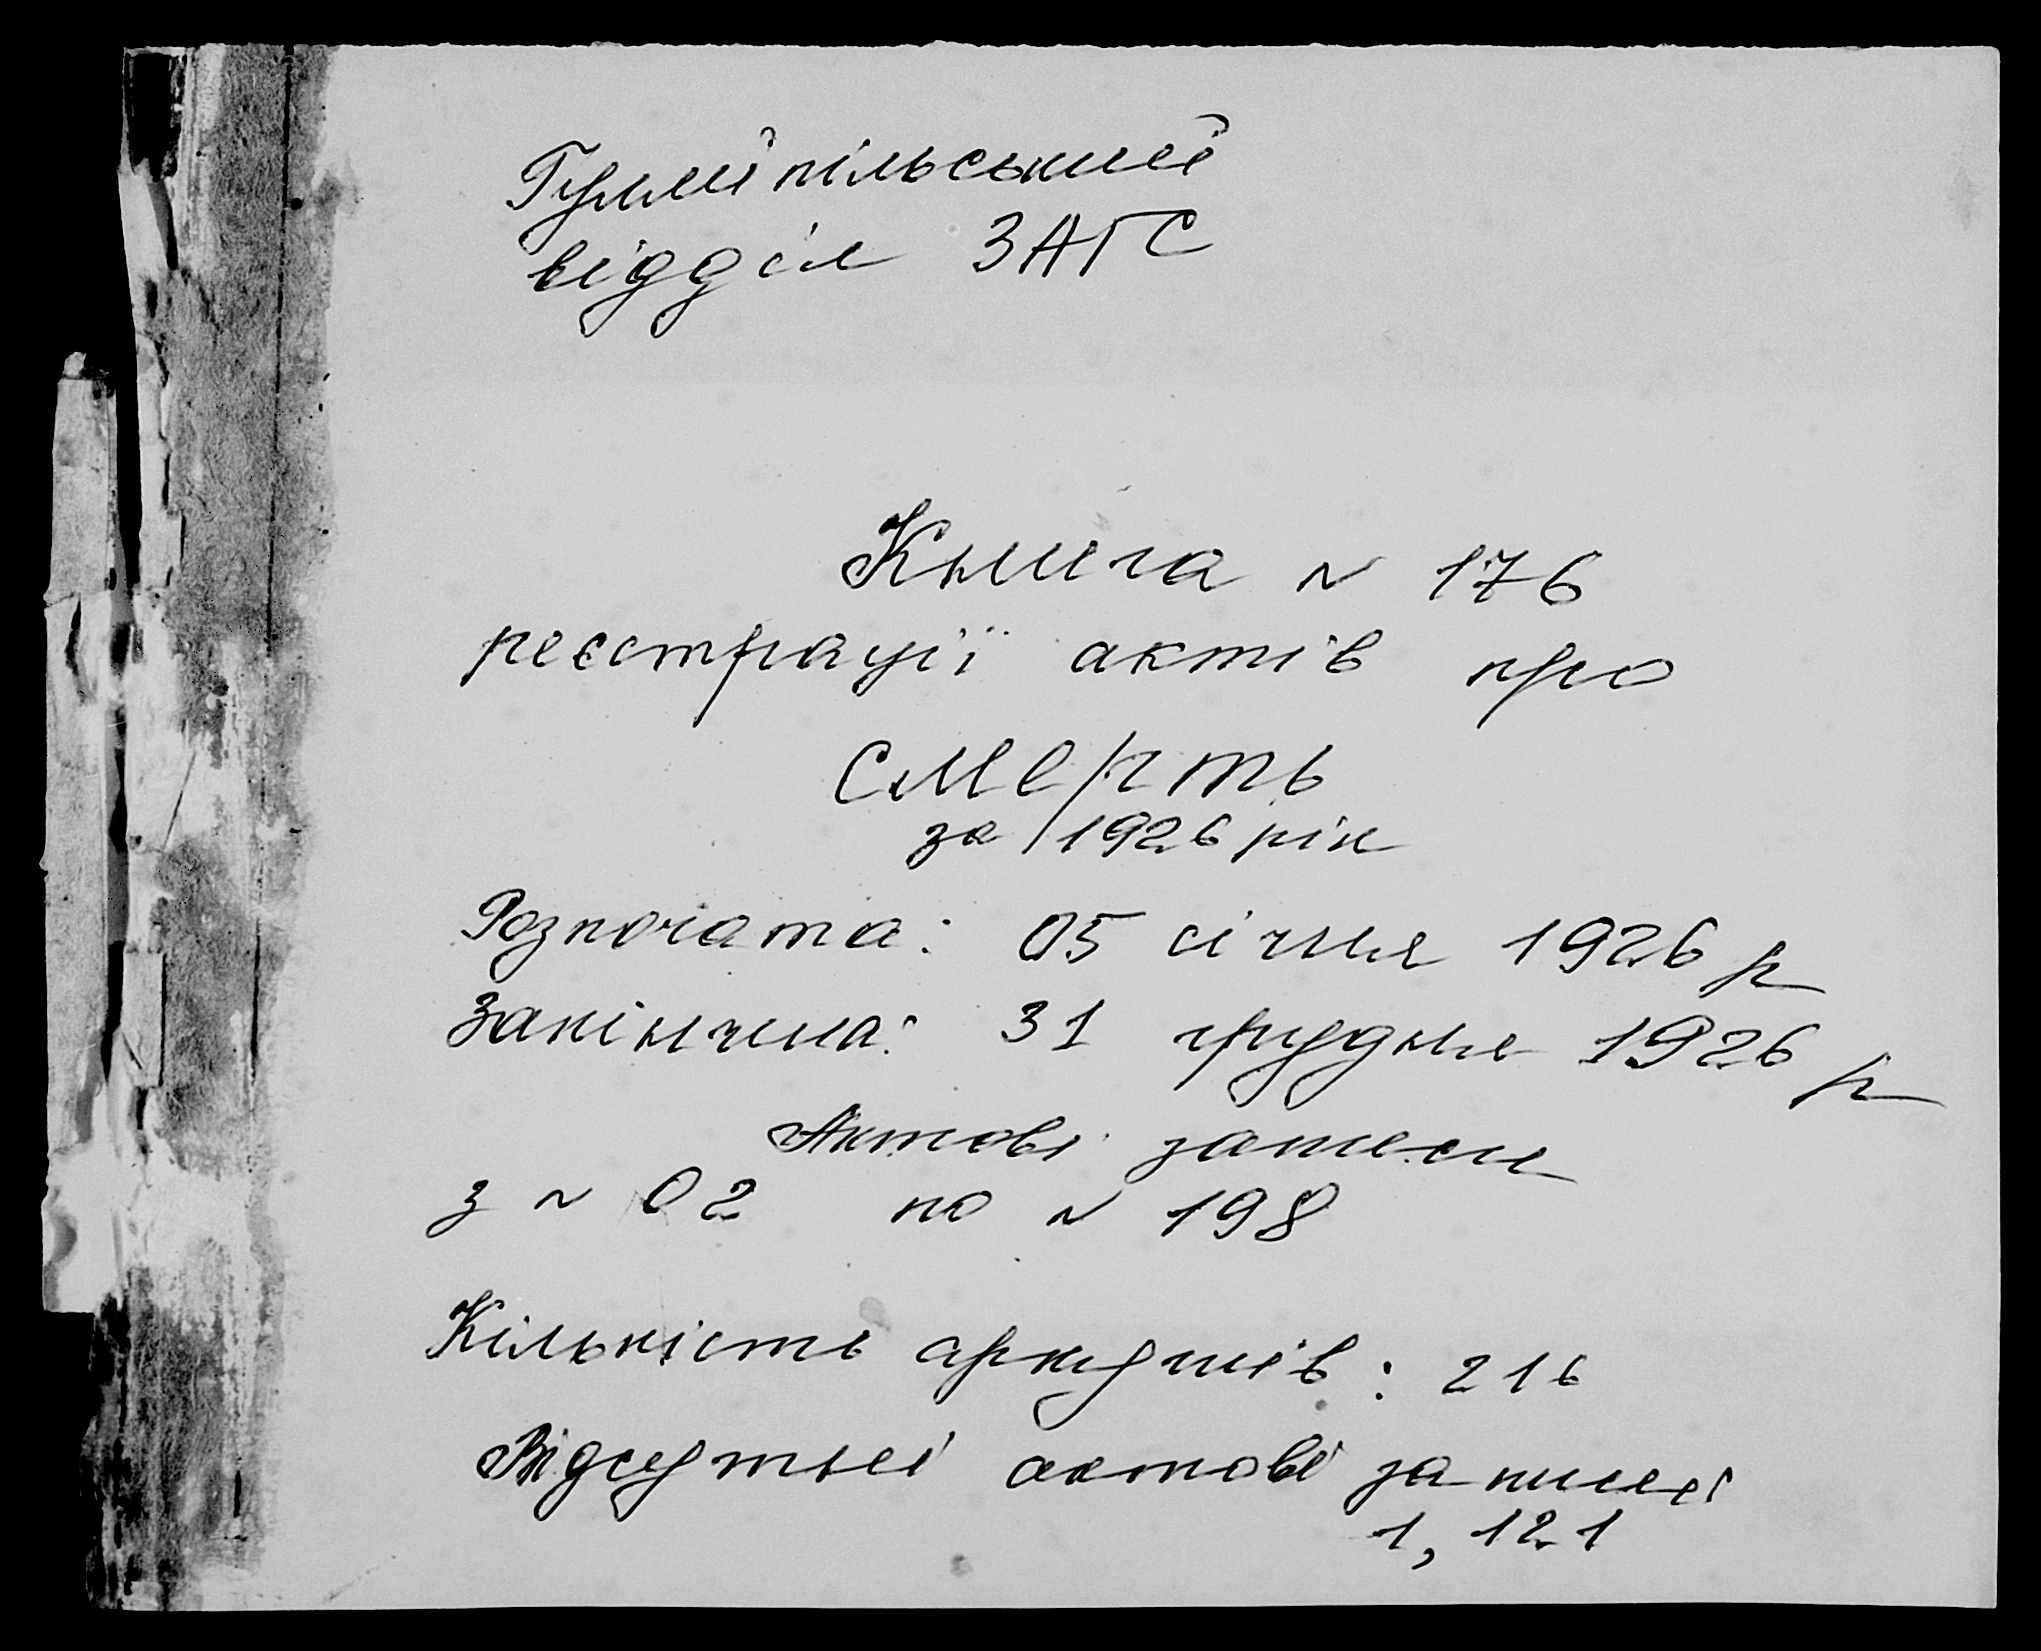 Гуляйпільський
відділ ЗАГС
Книга № 176
реєстрації актів про
смерть
за 1926 рік
Розпочата: 05 січня 1926 р
Закінчина: 31 грудня 1926 р
Актові записи
з № 02 по № 198
Кількість аркушів: 216
Відсутні актові записи
1, 121